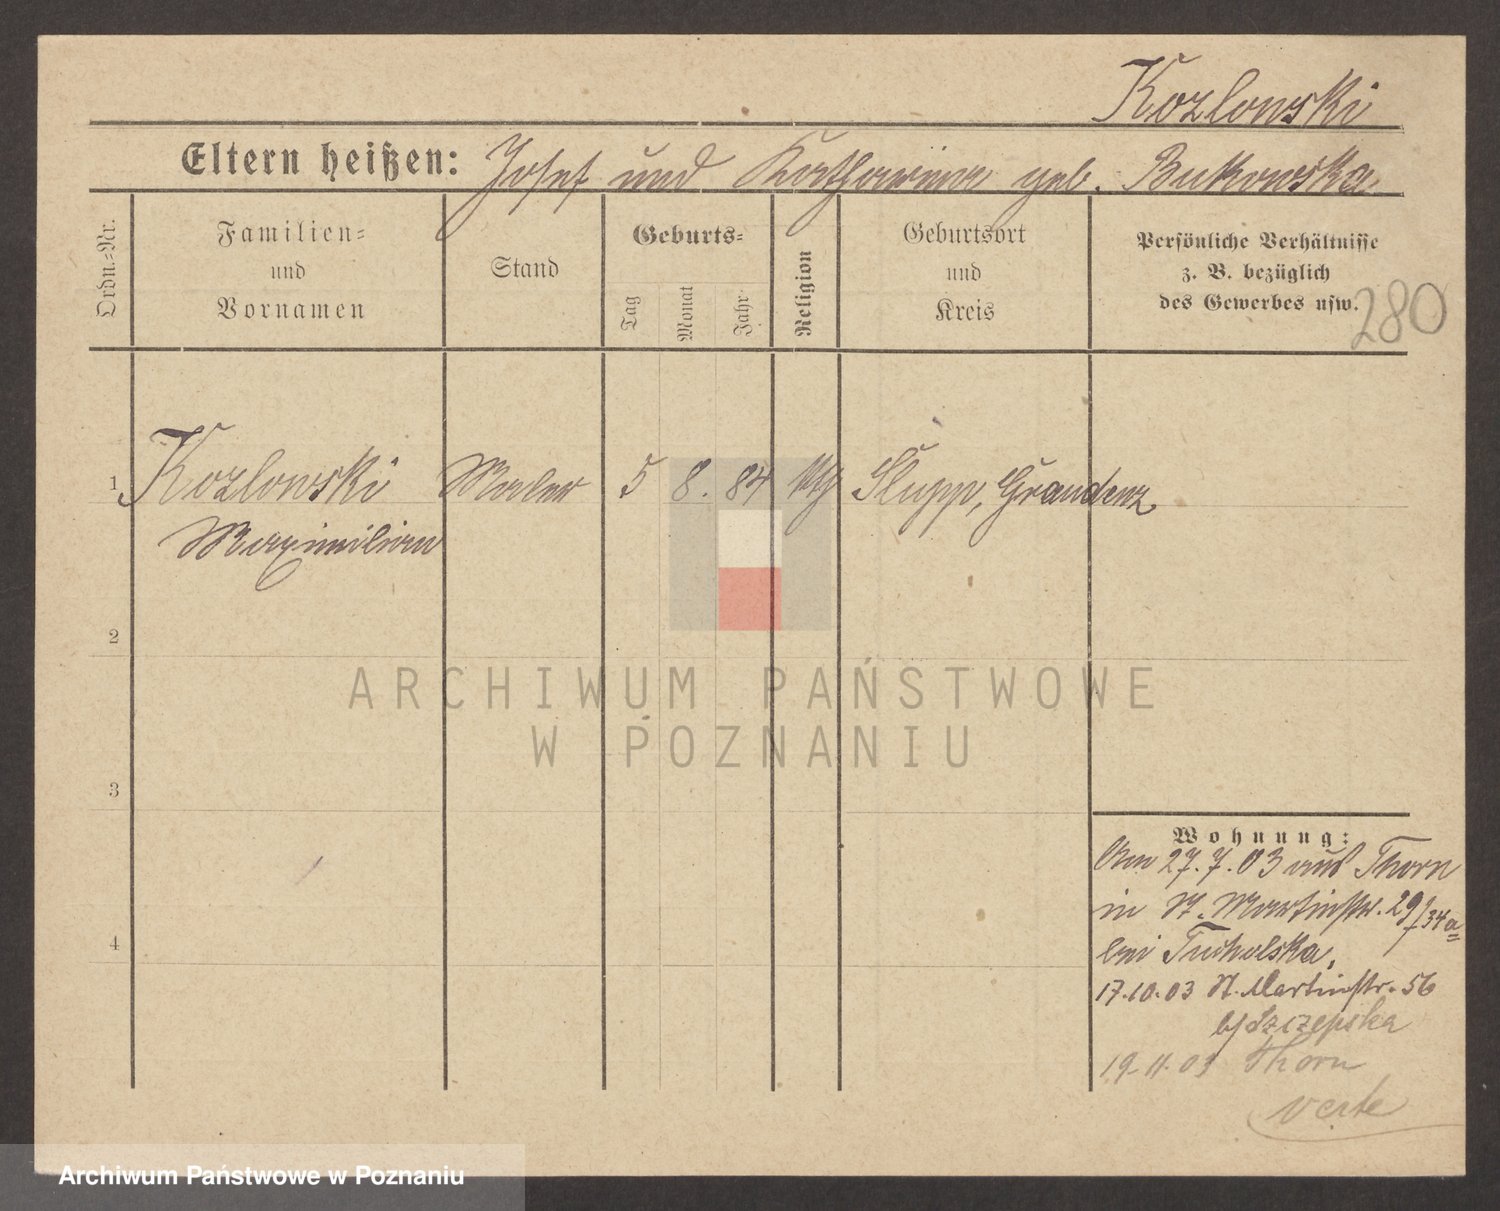 Kozlowski
Eltern heißen: Josef und Katharina geb. Bukowska.
Ordn.-Nr.
Familien-
und
Vornamen
Stand
Geburts-
Tag
Monat
Jahr
Religion
Geburtsort
und
Kreis
Persönliche Verhältnisse
z. B. bezüglich
des Gewerbes usw.
280
1 Kozlowski Maler 5 8. 84 kth Slupp, Graudenz
Maximilian
2
3
4
ARCHIWUM PAŃSTWOWE
W POZNANIU
Wohnung:
Am 27.7.03 aus Thorn
in St. Martinstr. 29/34a
bei Tucholska,
17.10.03 St. Martinstr. 56
b/ Szczepska
19.11.03 Thorn
verte
Archiwum Państwowe w Poznaniu